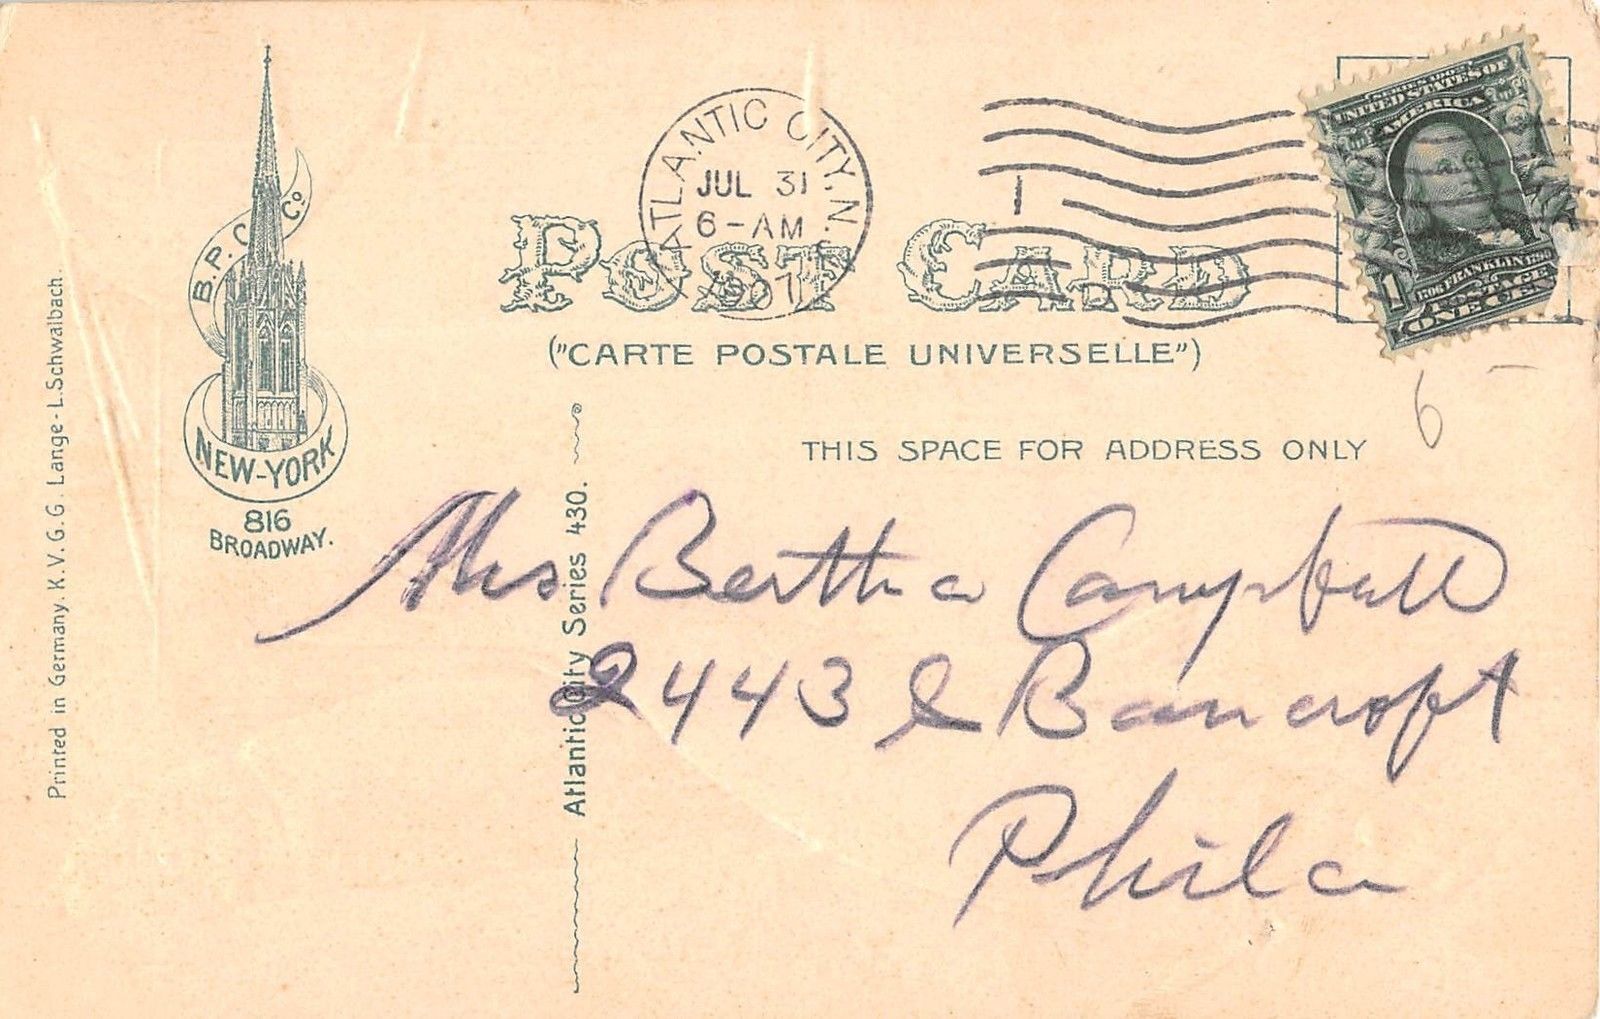 B.P.C. Co.
NEW-YORK
816
BROADWAY.
Printed in Germany. K. V. G. G. Lange - L. Schwalbach.
ATLANTIC CITY, N.J.
JUL 31
6-AM
1907
1
SERIES 1902
UNITED STATES OF
AMERICA
1706 FRANKLIN 1790
1 POSTAGE
ONE CENT
POST CARD
("CARTE POSTALE UNIVERSELLE")
6
THIS SPACE FOR ADDRESS ONLY
Atlantic City Series 430.
Mrs Bertha Campbell
2443 Bancroft
Phila